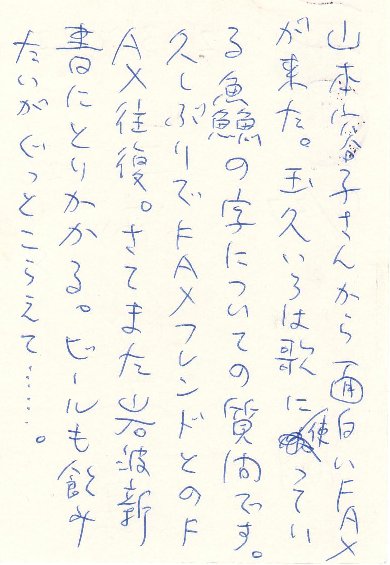 山本容子さんから面白いFAX
が来た。玉久いろは歌に使ってい
る鱻の字についての質問です。
久しぶりでFAXフレンドとのF
AX往復。さてまた岩波新
書にとりかかる。ビールも飲み
たいがぐっとこらえて……。